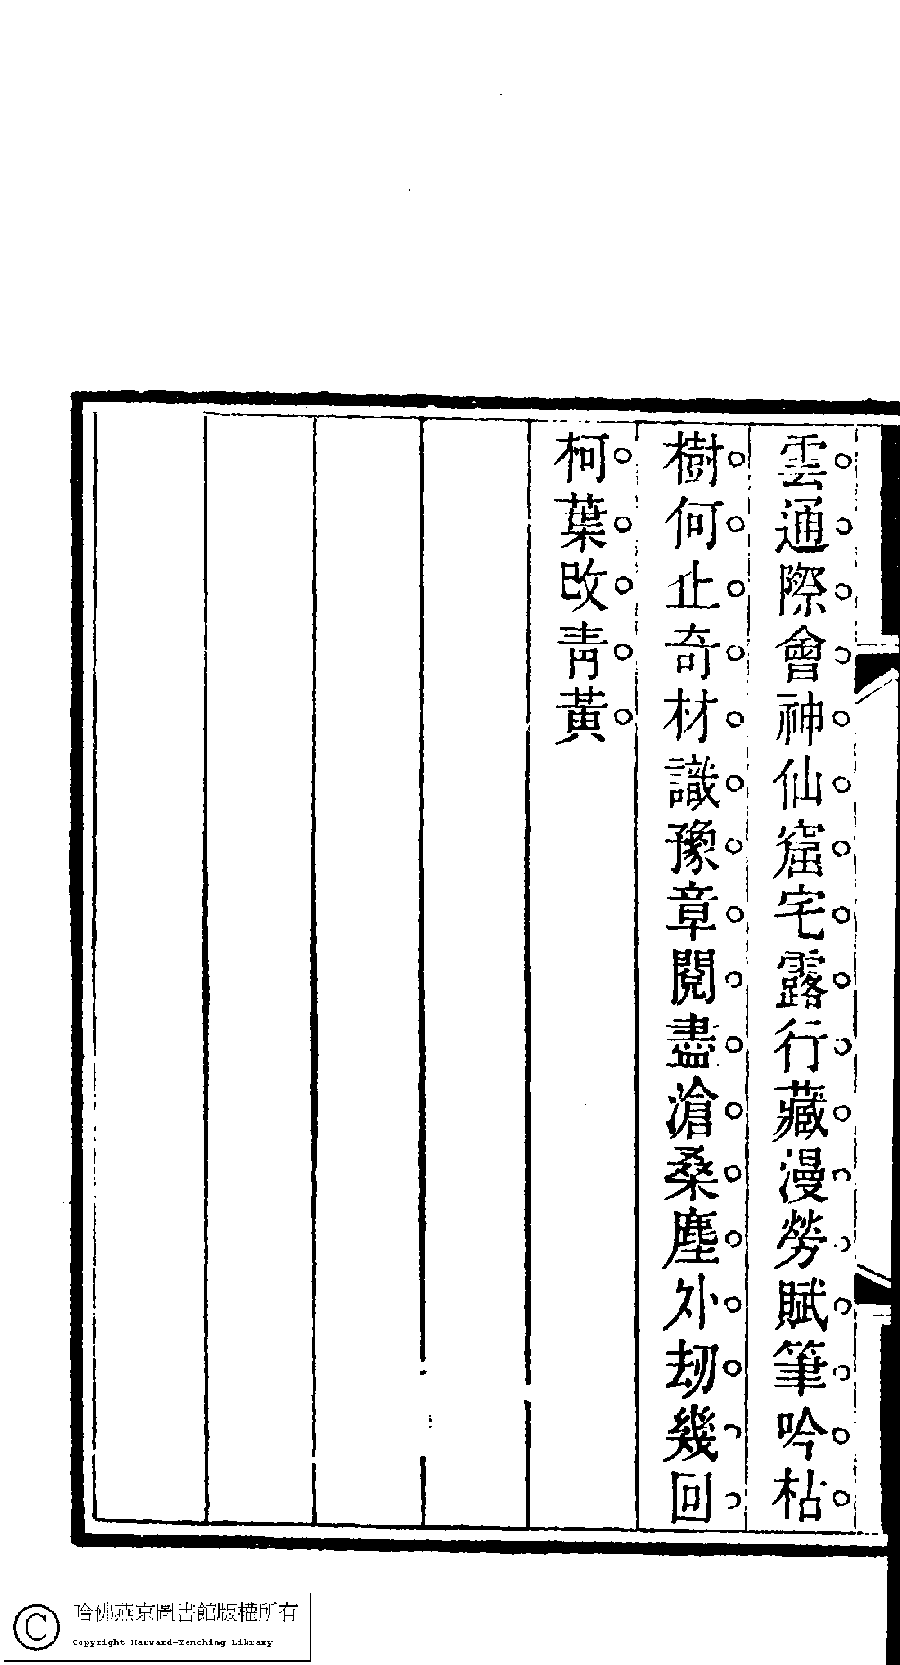 雲通際會神仙窟宅露行藏漫勞賦筆吟枯
樹何止奇材識豫章閱盡滄桑塵外刧幾回
柯葉改靑黃
哈佛燕京圖書館版權所有
Copyright Harvard-Yenching Library